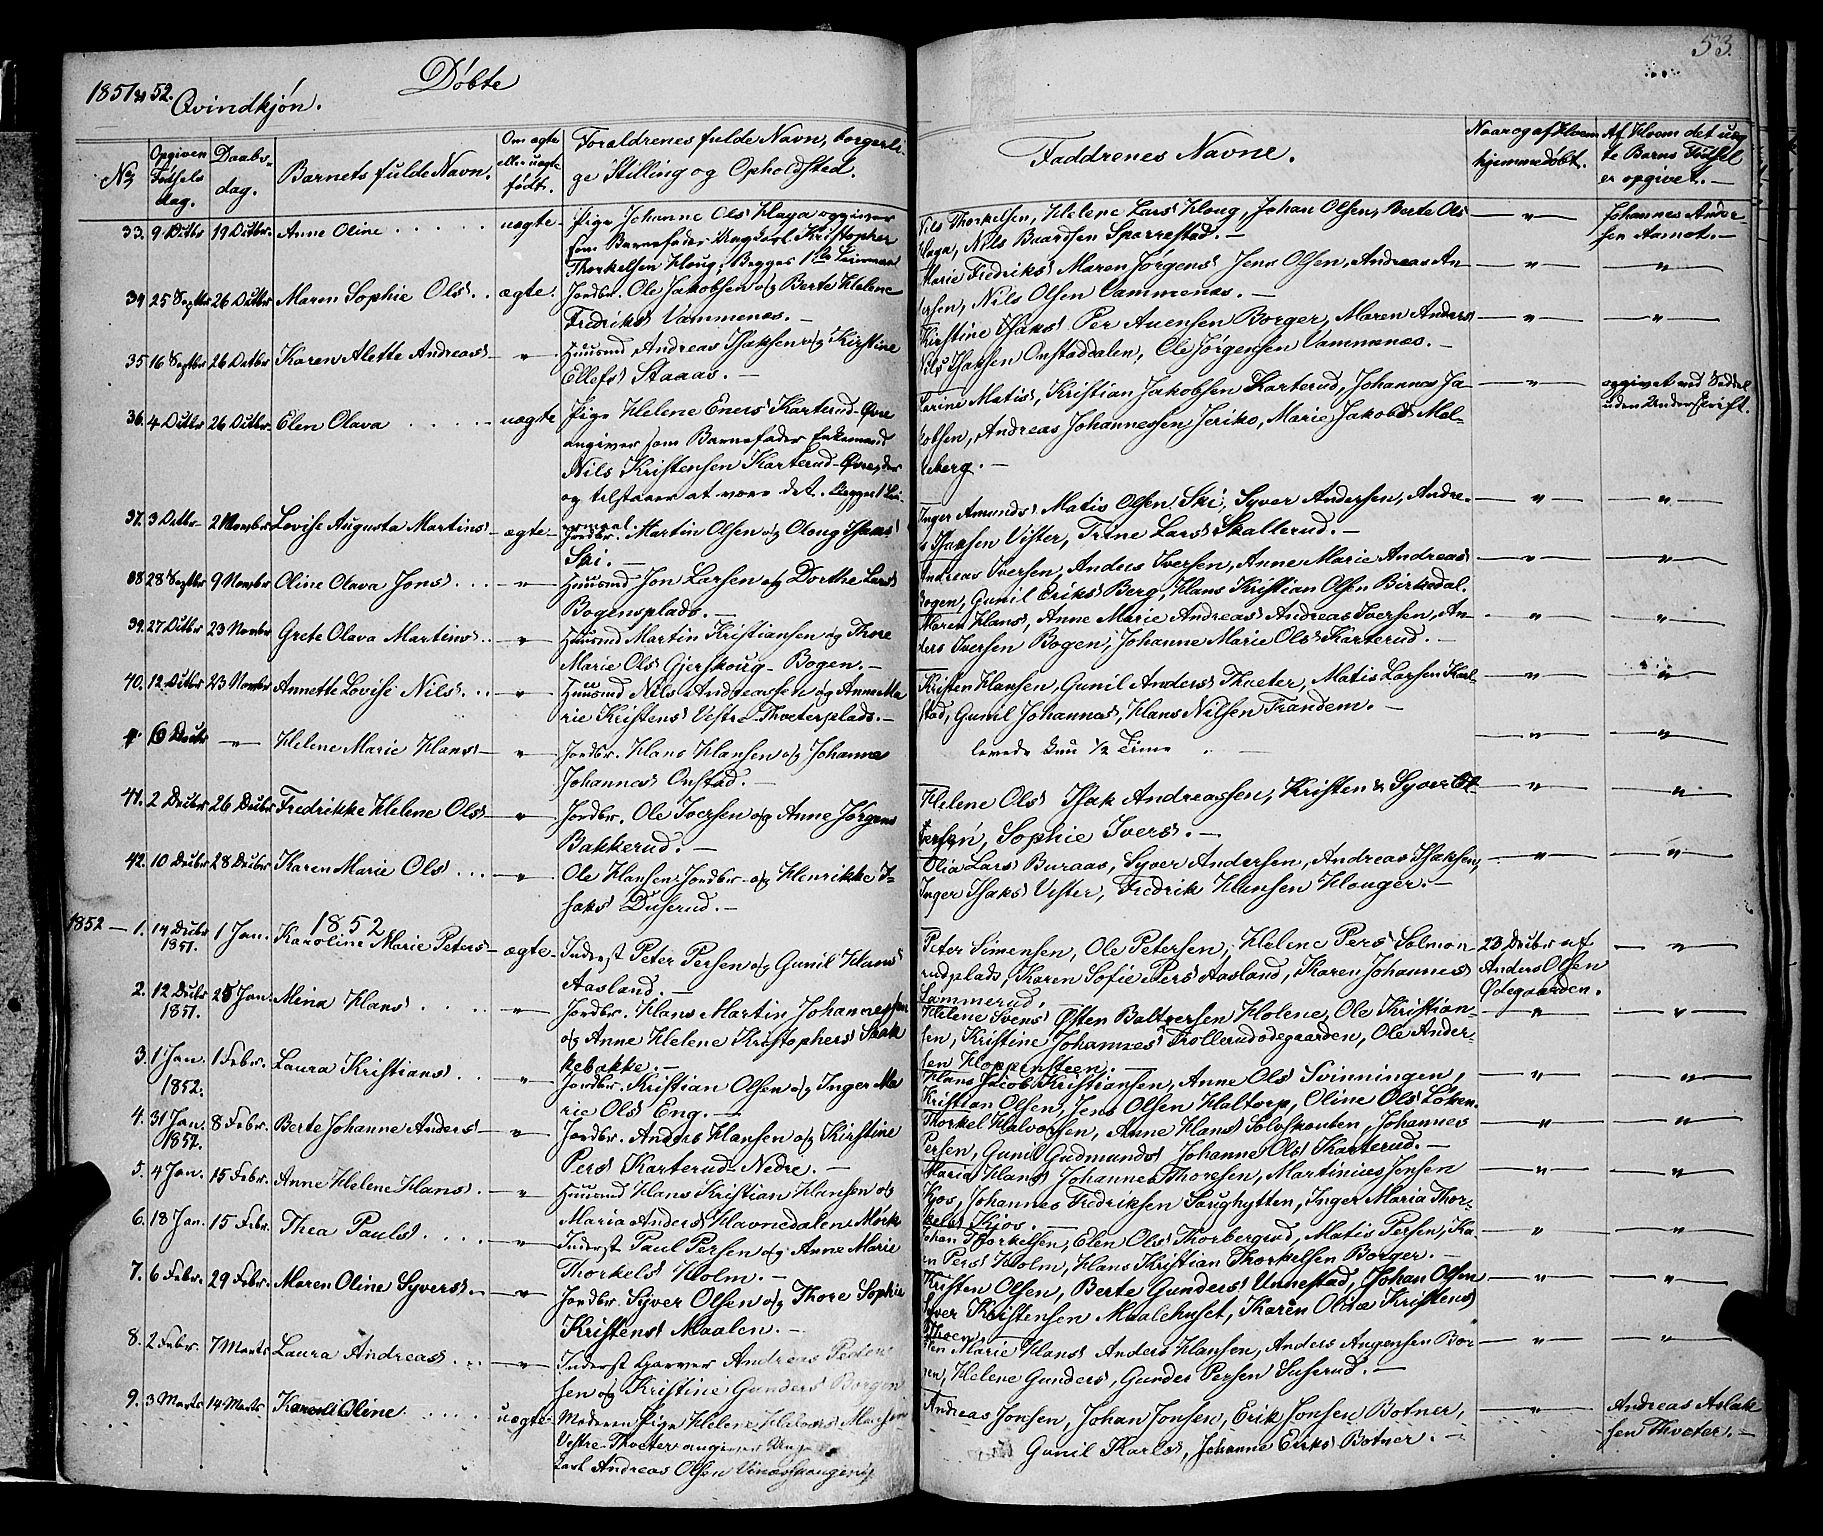 53.
1851 & 52. Døbte
Qvindkjøn.
No Opgiven Fødsels dag. Daabs-dag. Barnets fulde Navn. Om ægte eller uægte født. Forældrenes fulde Navn, borgerlige Stilling og Opholdsted.
Faddrenes Navne. Naar og af Hvem hjemmedøbt. Af Hvem det uægte Barns Fødsel er opgivet.
33. 9 Octbr 19 Octbr. Anne Oline uægte Pige Johanne Ols Haga opgiver
som Barnefader Ungkarl Kristopher
Thorkelsen Houg, Begges 1ste Leiermaal
Nils Thorkelsen, Helene Lars Houg, Johan Olsen, Berte Ols
Haga, Nils Baardsen Sparrestad. Johannes Andersen Aamot.
34 25 Septbr 26 Octbr Maren Sophie Ols ægte. Jordbr. Ole Jakobsen og Berte Helene
Fredriks Vammenæs.
Marie Fredriks Maren Jørgens Jens Olsen, Andreas An
Nils Olsen Vammenæs.
35 16 Septbr 26 Octbr Karen Alette Andreas " Huusmd Andreas Isaksen og Kirstine
Ellefs Staaas.
Kirstine Isaks Per Auensen Borger, Maren Anders
Nils Isaksen Onstaddalen, Ole Jørgensen Vammenæs.
36. 4 Octbr 26 Octbr. Elen Olava uægte Pige Helene Eners Karterud-Øvre
angiver som Barnefader Enkemand
Nils Kristensen Karterud-Øvre, der
og tilstaaer at være det. Begges 1 Lei-
ermaal.
Karine Matis, Kristian Jakobsen Karterud, Johannes Ja
kobsen, Andreas Johannessen Jeriko, Marie Jakobs Mol-
leberg. opgivet ved Seddel uden Underskrift.
37. 3 Octbr 2 Novembr Lovise Augusta Martins ægte Jordbr. Martin Olsen og Oloug Isaks
Ski.
Inger Amunds Matis Olsen Ski, Syver Andersen, Andre-
as Isaksen Vister, Trine Lars Skallerud.
38 28 Septbr 9 Novembr Oline Olava Jons " Huusmd Jon Larsen og Dorthe Lars
Bogensplads.
Andreas Iversen, Anders Iversen, Anne Marie Andreas
Bogen, Gunil Eriks Berg, Hans Kristian Olsen Birkedal.
39. 27 Octbr 23 Novembr Grete Olava Martins " Huusmd Martin Kristiansen og Thore
Marie Ols Gjerskoug-Bogen.
Maren Hans, Anne Marie Andreas Andreas Iversen, An-
ders Iversen Bogen, Johanne Marie Ols Karterud.
40. 12 Octbr 23 Novembr Annette Lovise Nils " Huusmd Nils Andreassen og Anne Ma
rie Kristens Vestre-Thveterplads.
Kristen Hansen, Gunil Anders Thveter, Matis Larsen Karl-
stad, Gunil Johannes, Hans Nilsen Trandem.
6 Decbr " Helene Marie Hans " Jordbr. Hans Hansen og Johanne
Johannes Onstad.
levede kun 1/2 Time
41. 2 Decbr 26 Decbr Fredrikke Helene Ols " Jordbr. Ole Iversen og Anne Jørgens
Bakkerud.
Helene Ols Isak Andreassen, Kristen & Syver
Sophie Ivers.
42. 10 Decbr 28 Decbr Karen Marie Ols " Ole Hansen Jordbr. og Henrikke I-
saks Duserud.
Olia Lars Buraas, Syver Andersen, Andreas Isaksen,
Inger Isaks Vister, Fredrik Hansen Houger.
1852
1852 1. 14 Decbr 1851. 1 Jan. Karoline Marie Peters ægte Inderst Peter Persen og Gunil Hans
Aasland.
Peter Simensen, Ole Petersen, Helene Pers Solmon-
rudplads, Karen Sofie Pers Aasland, Karen Johannes
Sammerud. 23 Decbr af Anders Olsen Ødegaarden.
2. 12 Decbr 1851. 25 Jan. Mina Hans " Jordbr. Hans Martin Johannessen
og Anne Helene Kristophers Skak
kebakke.
Helene Svens Østen Baltzersen Holene, Ole Kristian-
sen, Kristine Johannes Trollerudødegaarden, Ole Ander-
sen Kloppensteen.
3. 1 Jan. 1852. 1 Febr. Laura Kristians " Jordbr. Kristian Olsen og Inger Ma
rie Ols Eng.
Hans Jacob Kristiansen, Anne Ols Svinningen,
Kristian Olsen, Jens Olsen Haltorp, Oline Ols Løken.
4. 31 Jan. 1852. 8 Febr. Berte Johanne Anders " Jordbr. Anders Hansen og Kirstine
Pers Karterud-Nedre.
Thorkel Halvorsen, Anne Hans Solvskouten, Johannes
Persen, Gunil Gudmunds Johanne Ols Karterud.
5. 4 Jan. 15 Febr. Anne Helene Hans " Huusmd Hans Kristian Hansen og
Maria Anders Havnedalen Mørk
Maria Hans Johanne Thoresen, Martinius Jensen
Kjos, Johannes Fredriksen Saughytten, Inger Maria Thor-
kels Kjos.
6. 18 Jan. 15 Febr. Thea Pauls " Inderst Paul Persen og Anne Marie
Thorkels Holm.
Johan Thorkelsen, Elen Ols Thorbergrud, Matis Persen, Ka
ren Pers Holm, Hans Kristian Thorkelsen Borger.
7. 6 Febr. 29 Febr. Maren Oline Syvers " Jordbr Syver Olsen og Thore Sophie
Kristens Maalen.
Kristen Olsen, Berte Gunders Unnestad, Johan Olsen
Syver Kristensen Maalehuset, Karen Olea Kristens
8. 2 Febr. 7 Marts Laura Andreas " Inderst Garver Andreas Peder
sen og Kristine Gunders Borgen
Marie Hans Anders Hansen, Anders Augensen Bor-
gen, Helene Gunders, Gunder Persen Suserud.
9. 3 Marts 14 Marts. Oline uægte Moderen Pige Helene
Vestre-Thveter angiver Ung
karl Andreas Olsen
Andreas Jonsen, Johan Jonsen, Erik Jonsen Botner,
Gunil Karls, Johanne Eriks Botner. Andreas Aslak
sen Thveter.